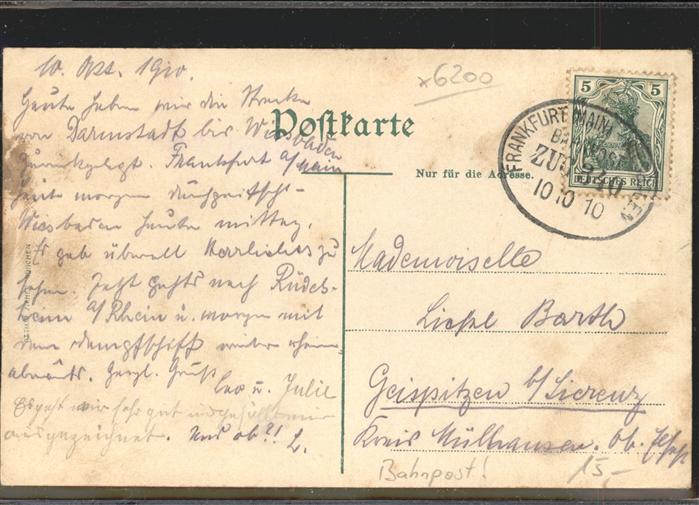 10. Okt. 1910.
Heute haben wir die Strecke
von Darmstadt bis Wiesbaden
zurückgelegt. Frankfurt a/Main
heute morgen
Wiesbaden heute mittag.
Es gab überall Herrliches zu
sehen. Jetzt gehts nach Rüdes-
heim a/Rhein u. morgen mit
dem Dampfschiff weiter rhein-
abwärts. Herzl. Gruß
Leo u. Julie
Es geht mir sehr gut
ausgezeichnet. Und ob?! L.
x6200
Postkarte
Nur für die Adresse.
5 5
DEUTSCHES REICH
FRANKFURT (MAIN)
BAHNPOST
ZUG
10 10 10
Mademoiselle
Liesel Barth
Geispitzen b/Sierenz
Kreis Mülhausen. Ob. Elsass
Bahnpost!
15,-